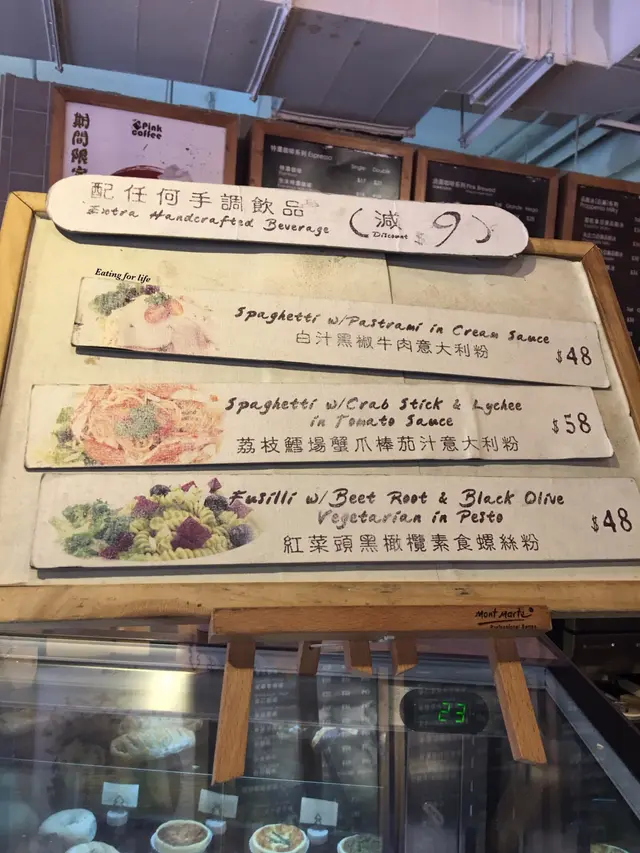 期間限定
Pink
Coffee
特濃咖啡系列 Espresso
Single Double
配任何手調飲品
Extra Handcrafted Beverage
(減 $9)
Discount
Eating for life
Spaghetti w/Pastrami in Cream Sauce
白汁黑椒牛肉意大利粉
$48
Spaghetti w/Crab Stick & Lychee
in Tomato Sauce
荔枝鱈場蟹爪棒茄汁意大利粉
$58
Fusilli w/Beet Root & Black Olive
Vegetarian in Pesto
紅菜頭黑橄欖素食螺絲粉
$48
Mont Marte
Professional Series
23